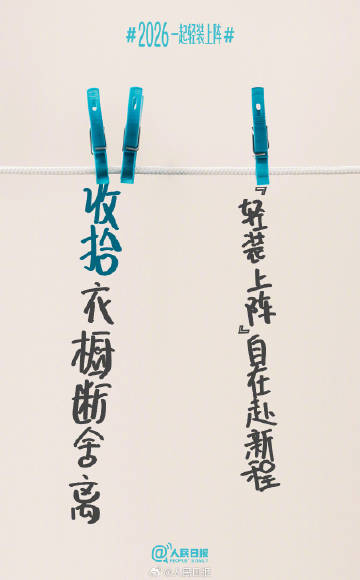 #2026一起轻装上阵#
收拾衣橱断舍离
『轻装上阵』自在赴新程
@人民日报
PEOPLE'S DAILY
@人民日报